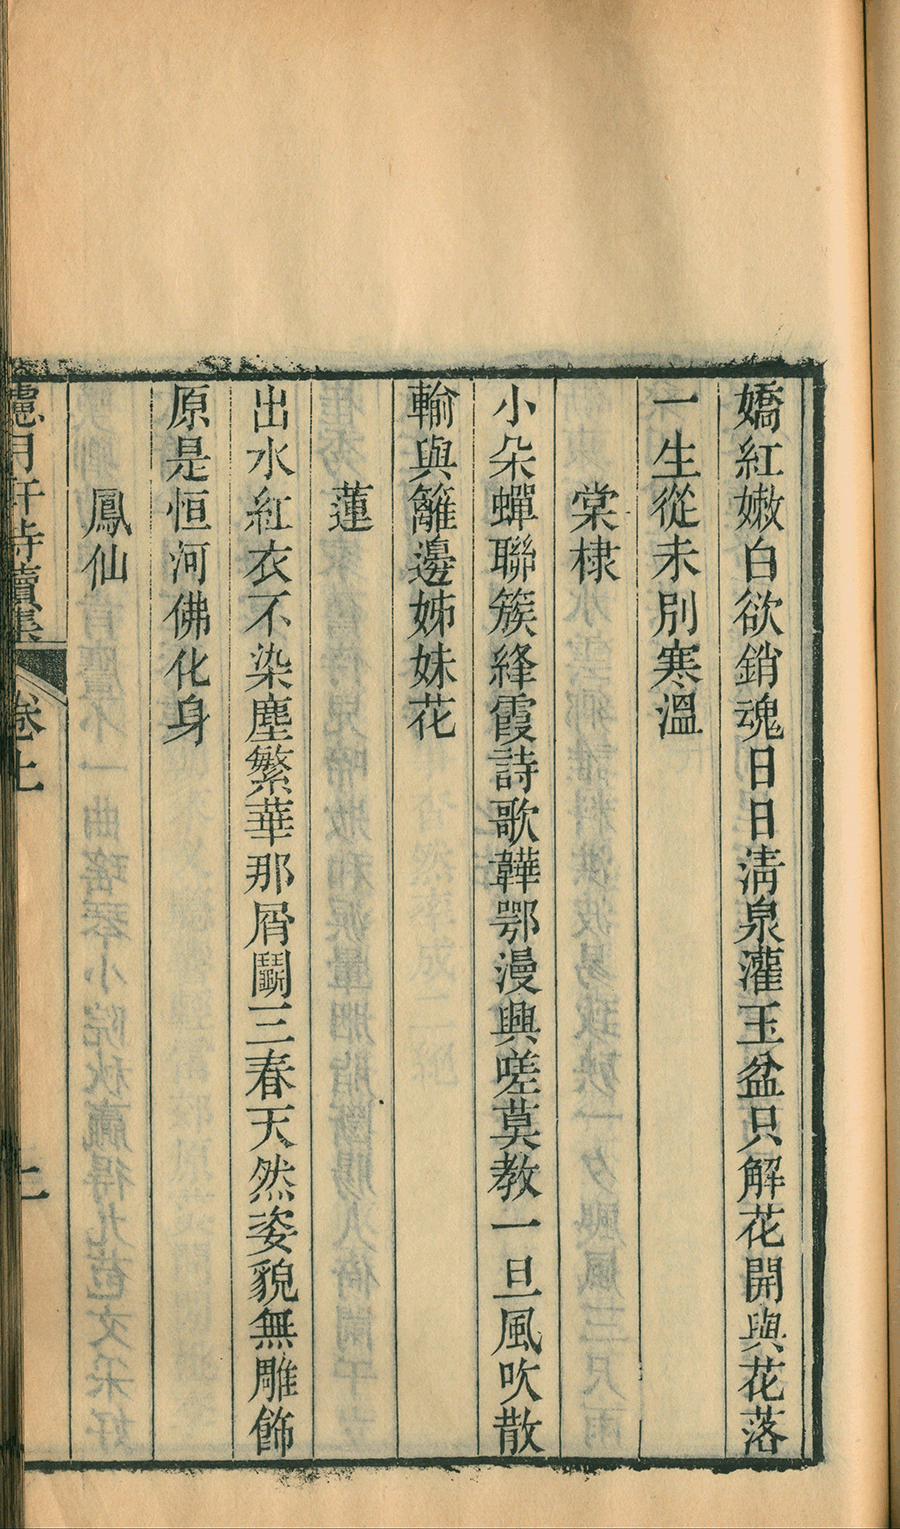 嬌紅嫩白欲銷魂日日清泉灌玉盆只解花開與花落
一生從未別寒溫
棠棣
小朵蟬聯簇絳霞詩歌韡鄂漫興嗟莫教一旦風吹散
輸與籬邊姊妹花
蓮
出水紅衣不染塵繁華那屑鬬三春天然姿貌無雕飾
原是恒河佛化身
鳳仙
慮月軒詩續集 卷上